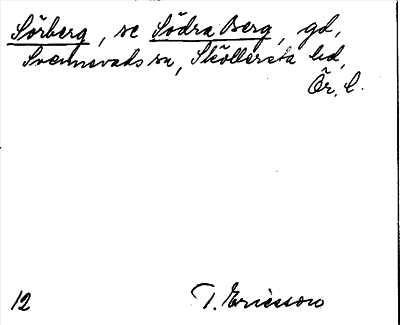 Sörberg, se Södra Berg, gd,
Svennevads sn, Sköllersta hd,
Ör. l.
12 T. Ericsson